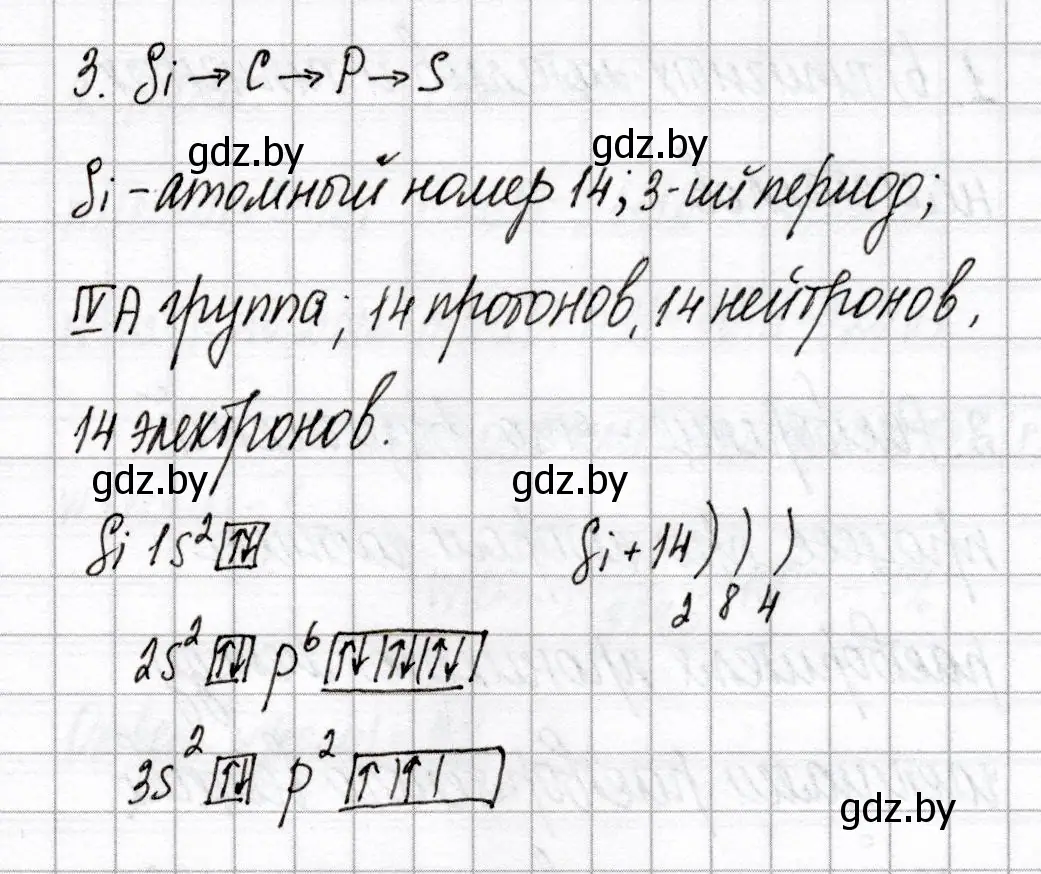 3. Si → C → P → S
gdz.by gdz.by
Si - атомный номер 14; 3-ий период;
IV A группа; 14 протонов, 14 нейтронов,
14 электронов.
gdz.by gdz.by
Si 1s² ↑↓ Si + 14 ) ) )
2 8 4
2s² ↑↓ p⁶ ↑↓ ↑↓ ↑↓
3s² ↑↓ p² ↑ ↑
gdz.by